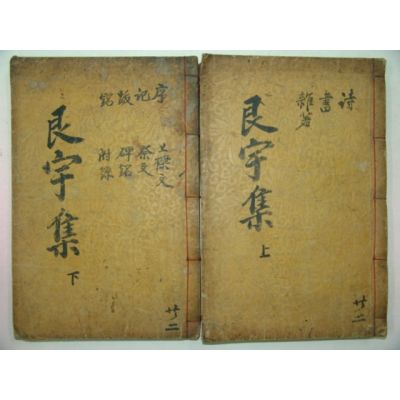 詩
書
雜著
艮宇集 上
共二
序 上樑文
記 祭文
跋 碑銘
銘 附錄
艮宇集 下
共二